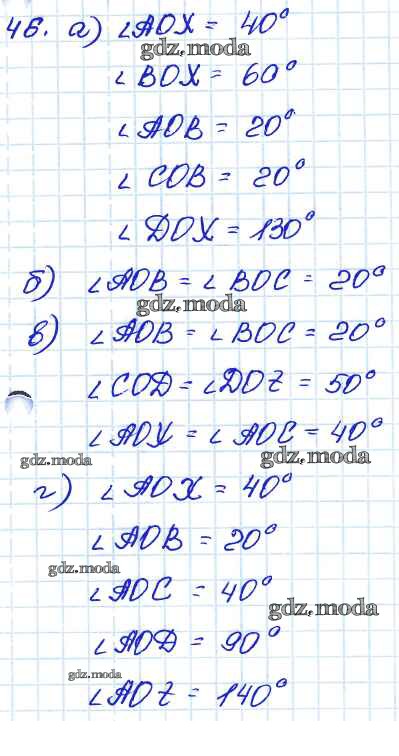 46. а) ∠AOX = 40°
gdz.moda
∠BOX = 60°
∠AOB = 20°
∠COB = 20°
∠DOX = 130°
б) ∠AOB = ∠BOC = 20°
gdz.moda
в) ∠AOB = ∠BOC = 20°
∠COD = ∠DOZ = 50°
∠AOX = ∠AOC = 40°
gdz.moda gdz.moda
г) ∠AOX = 40°
∠AOB = 20°
gdz.moda
∠AOC = 40°
gdz.moda
∠AOD = 90°
gdz.moda
∠AOZ = 140°